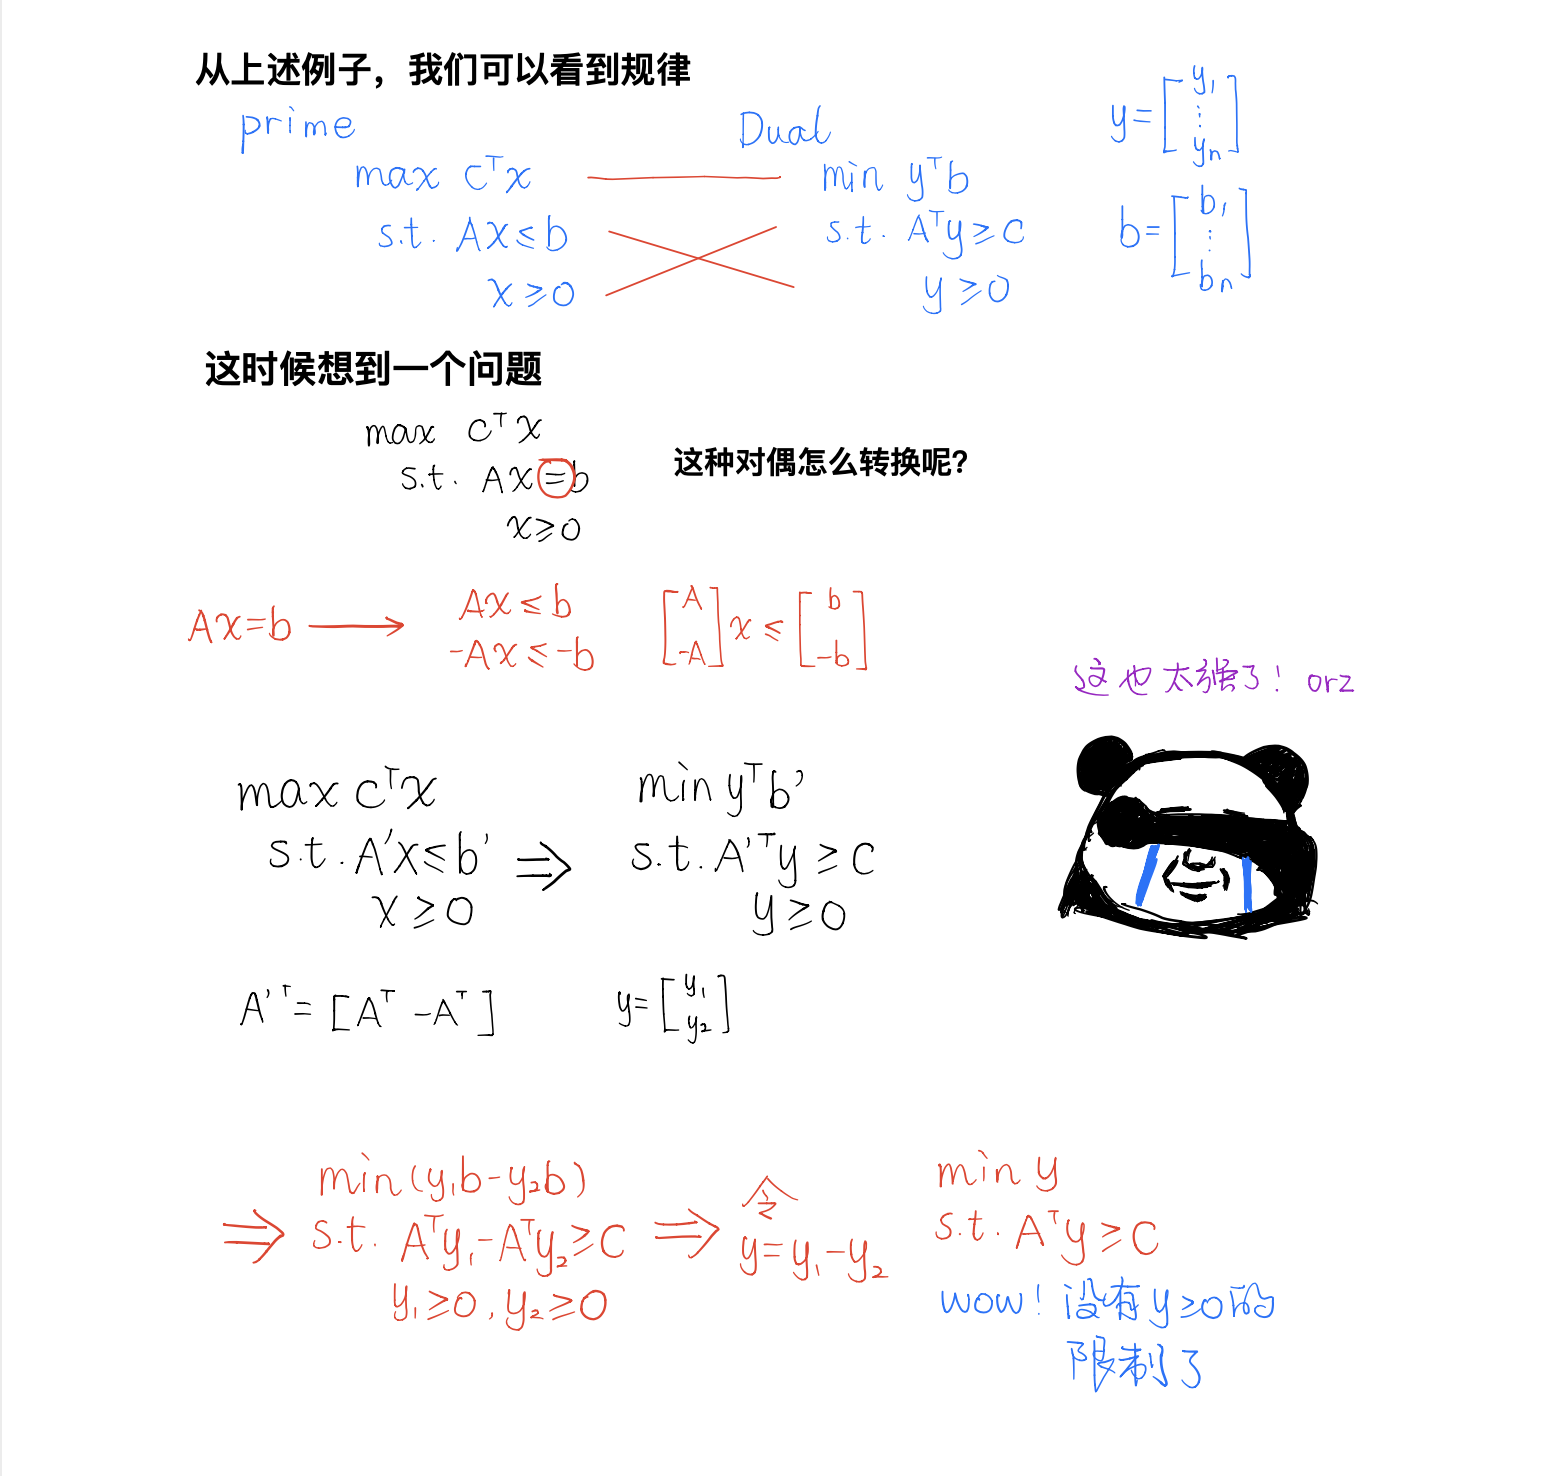 从上述例子，我们可以看到规律
prime
Dual
y=[y₁ ⋮ yₙ]
max cᵀx
min yᵀb
s.t. Ax≤b
s.t. Aᵀy≥c
b=[b₁ ⋮ bₙ]
x≥0
y≥0
这时候想到一个问题
max cᵀx
s.t. Ax=b
x≥0
这种对偶怎么转换呢？
Ax=b ⟶
Ax≤b
-Ax≤-b
[A -A]x≤[b -b]
这也太强了！orz
max cᵀx
s.t. A'x≤b'
x≥0
⇒
min yᵀb'
s.t. A'ᵀy≥c
y≥0
A'ᵀ=[Aᵀ -Aᵀ]
y=[y₁ y₂]
⇒
min(y₁b-y₂b)
s.t. Aᵀy₁-Aᵀy₂≥c
y₁≥0,y₂≥0
⇒
令
y=y₁-y₂
min y
s.t. Aᵀy≥c
wow！没有y≥0的
限制了